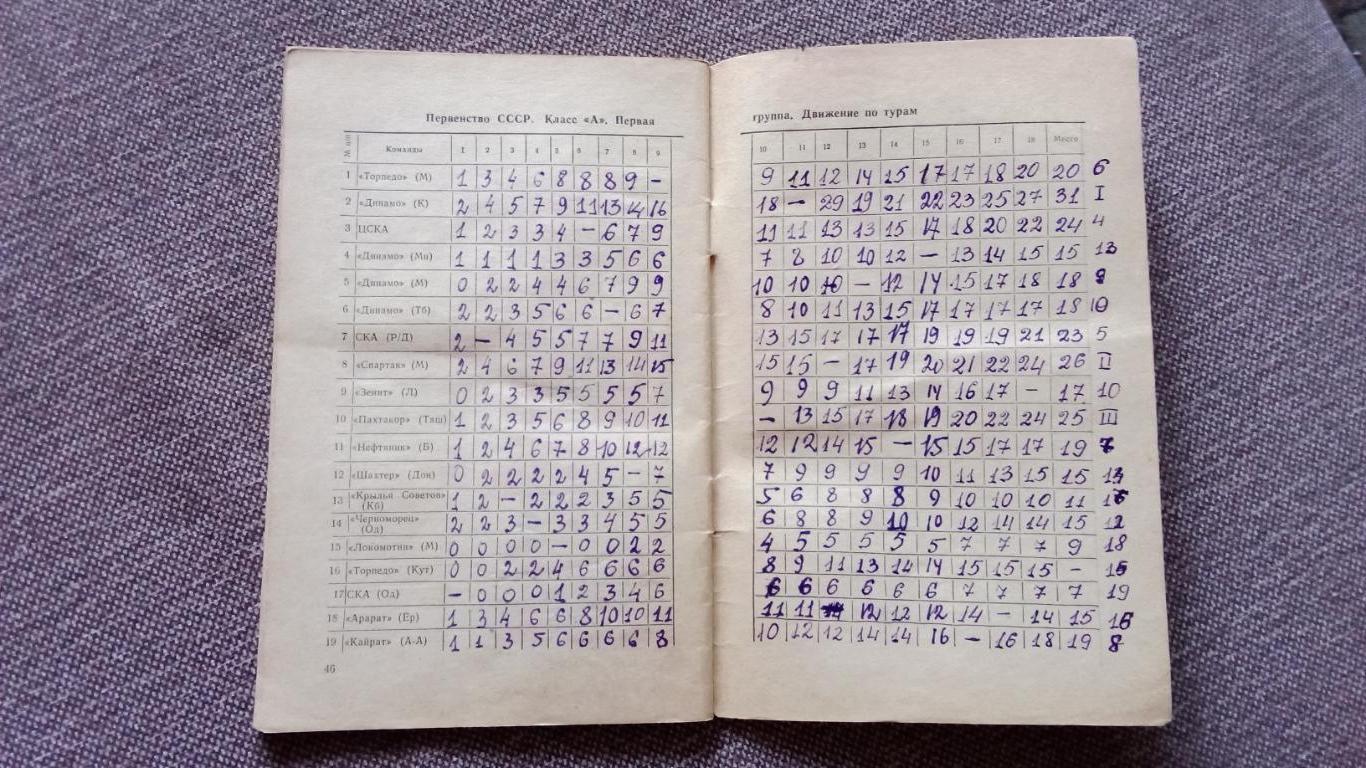 Первенство СССР. Класс «А». Первая
группа. Движение по турам
№ п/п Команды 1 2 3 4 5 6 7 8 9 10 11 12 13 14 15 16 17 18 Место
1 «Торпедо» (М) 1 3 4 6 8 8 8 9 – 9 11 12 14 15 17 17 18 20 20 6
2 «Динамо» (К) 2 4 5 7 9 11 13 14 16 18 – 29 19 21 22 23 25 27 31 I
3 ЦСКА 1 2 3 3 4 – 6 7 9 11 11 13 13 15 17 18 20 22 24 4
4 «Динамо» (Мн) 1 1 1 1 3 3 5 6 6 7 8 10 10 12 – 13 14 15 15 13
5 «Динамо» (М) 0 2 2 4 4 6 7 9 9 10 10 10 – 12 14 15 17 18 18 9
6 «Динамо» (Тб) 2 2 3 5 6 6 – 6 7 8 10 11 13 15 17 17 17 17 18 10
7 СКА (Р/Д) 2 – 4 5 5 7 7 9 11 13 15 17 17 17 19 19 19 21 23 5
8 «Спартак» (М) 2 4 6 7 9 11 13 14 15 15 15 – 17 19 20 21 22 24 26 II
9 «Зенит» (Л) 0 2 3 3 5 5 5 5 7 9 9 9 11 13 14 16 17 – 17 10
10 «Пахтакор» (Таш) 1 2 3 5 6 8 9 10 11 – 13 15 17 18 19 20 22 24 25 III
11 «Нефтяник» (Б) 1 2 4 6 7 8 10 12 12 12 12 14 15 – 15 15 17 17 19 7
12 «Шахтер» (Дон) 0 2 2 2 2 4 5 – 7 7 9 9 9 9 10 11 13 15 15
13 «Крылья Советов» (Кб) 1 2 – 2 2 2 3 5 5 5 6 8 8 8 9 10 10 10 11
14 «Черноморец» (Од) 2 2 3 – 3 3 4 5 5 6 8 8 9 10 10 12 14 14 15 12
15 «Локомотив» (М) 0 0 0 0 – 0 0 2 2 4 5 5 5 5 5 7 7 7 9 18
16 «Торпедо» (Кут) 0 0 2 2 4 6 6 6 6 8 9 11 13 14 14 15 15 15 – 15
17 СКА (Од) – 0 0 0 1 2 3 4 6 6 6 6 6 6 6 7 7 7 7 19
18 «Арарат» (Ер) 1 3 4 6 6 8 10 10 11 11 11 12 12 12 14 – 14 15 16
19 «Кайрат» (А-А) 1 1 3 5 6 6 6 6 8 10 12 12 14 14 16 – 16 18 19 8
46